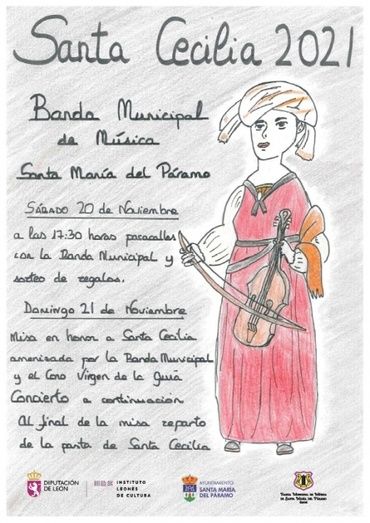 Santa Cecilia 2021
Banda Municipal
de Música
Santa María del Páramo
SÁBADO 20 de Noviembre
a las 17:30 horas pasacalles
con la Banda Municipal y
sorteo de regalos.
Domingo 21 de Noviembre
Misa en honor a Santa Cecilia
amenizada por la Banda Municipal
y el Coro Virgen de la Guía
Concierto a continuación
Al final de la misa reparto
de la pasta de Santa Cecilia
DIPUTACIÓN
DE LEÓN
INSTITUTO
LEONÉS
DE CULTURA
AYUNTAMIENTO
SANTA MARÍA
DEL PÁRAMO